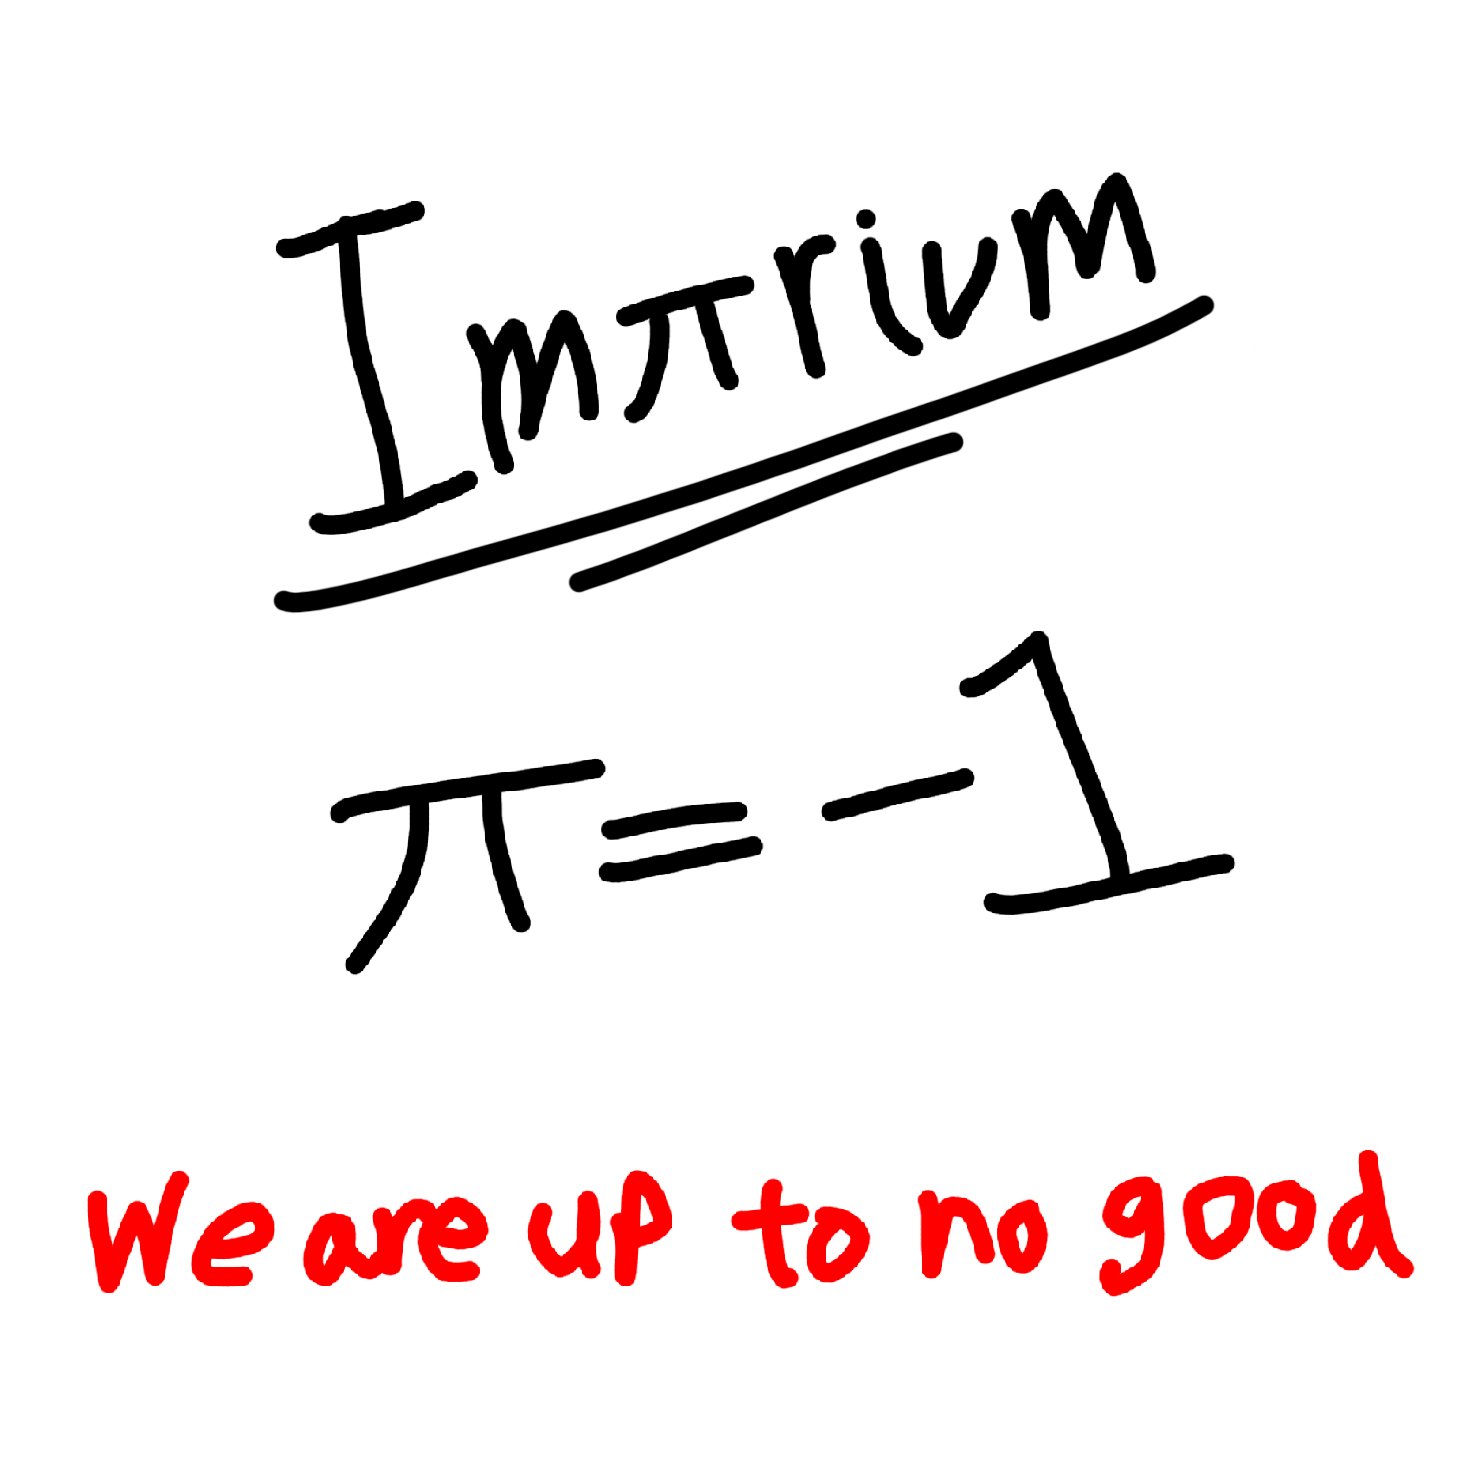 Imπrium
π=-1
We are up to no good